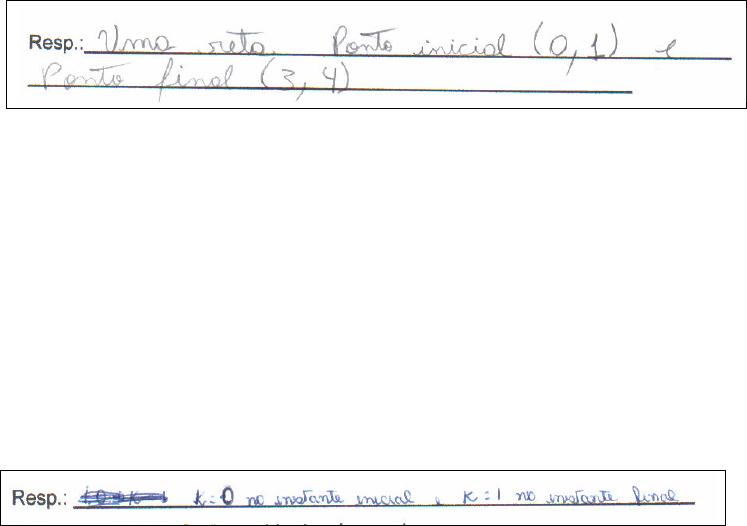 Resp.: Uma reta. Ponto inicial (0,1) e
Ponto final (3,4)
Resp.: k=0 no instante inicial e k=1 no instante final